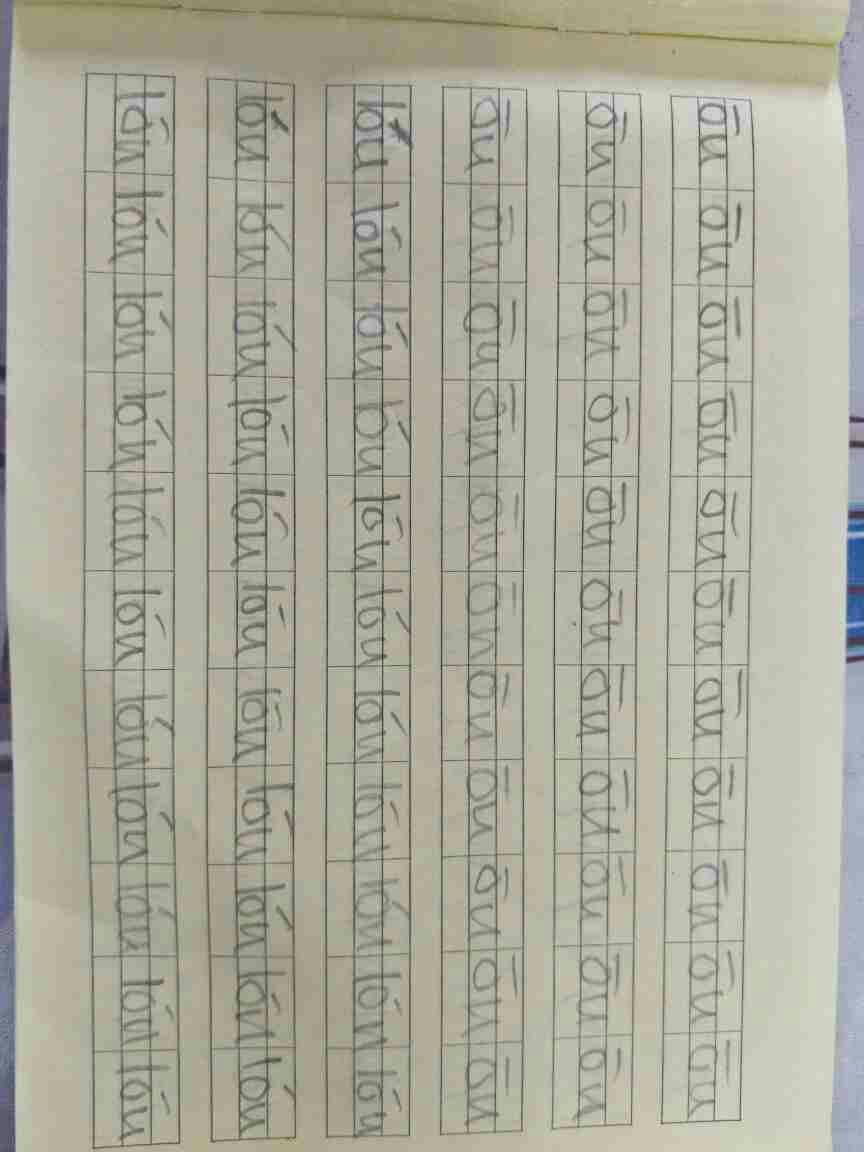 ōu ōu ōu ōu ōu ōu ōu ōu ōu ōu ōu
ōu ōu ōu ōu ōu ōu ōu ōu ōu ōu ōu
ōu ōu ōu ōu ōu ōu ōu ōu ōu ōu ōu
lóu lóu lóu lóu lóu lóu lóu lóu lóu lóu lóu
lóu lóu lóu lóu lóu lóu lóu lóu lóu lóu lóu
lóu lóu lóu lóu lóu lóu lóu lóu lóu lóu lóu